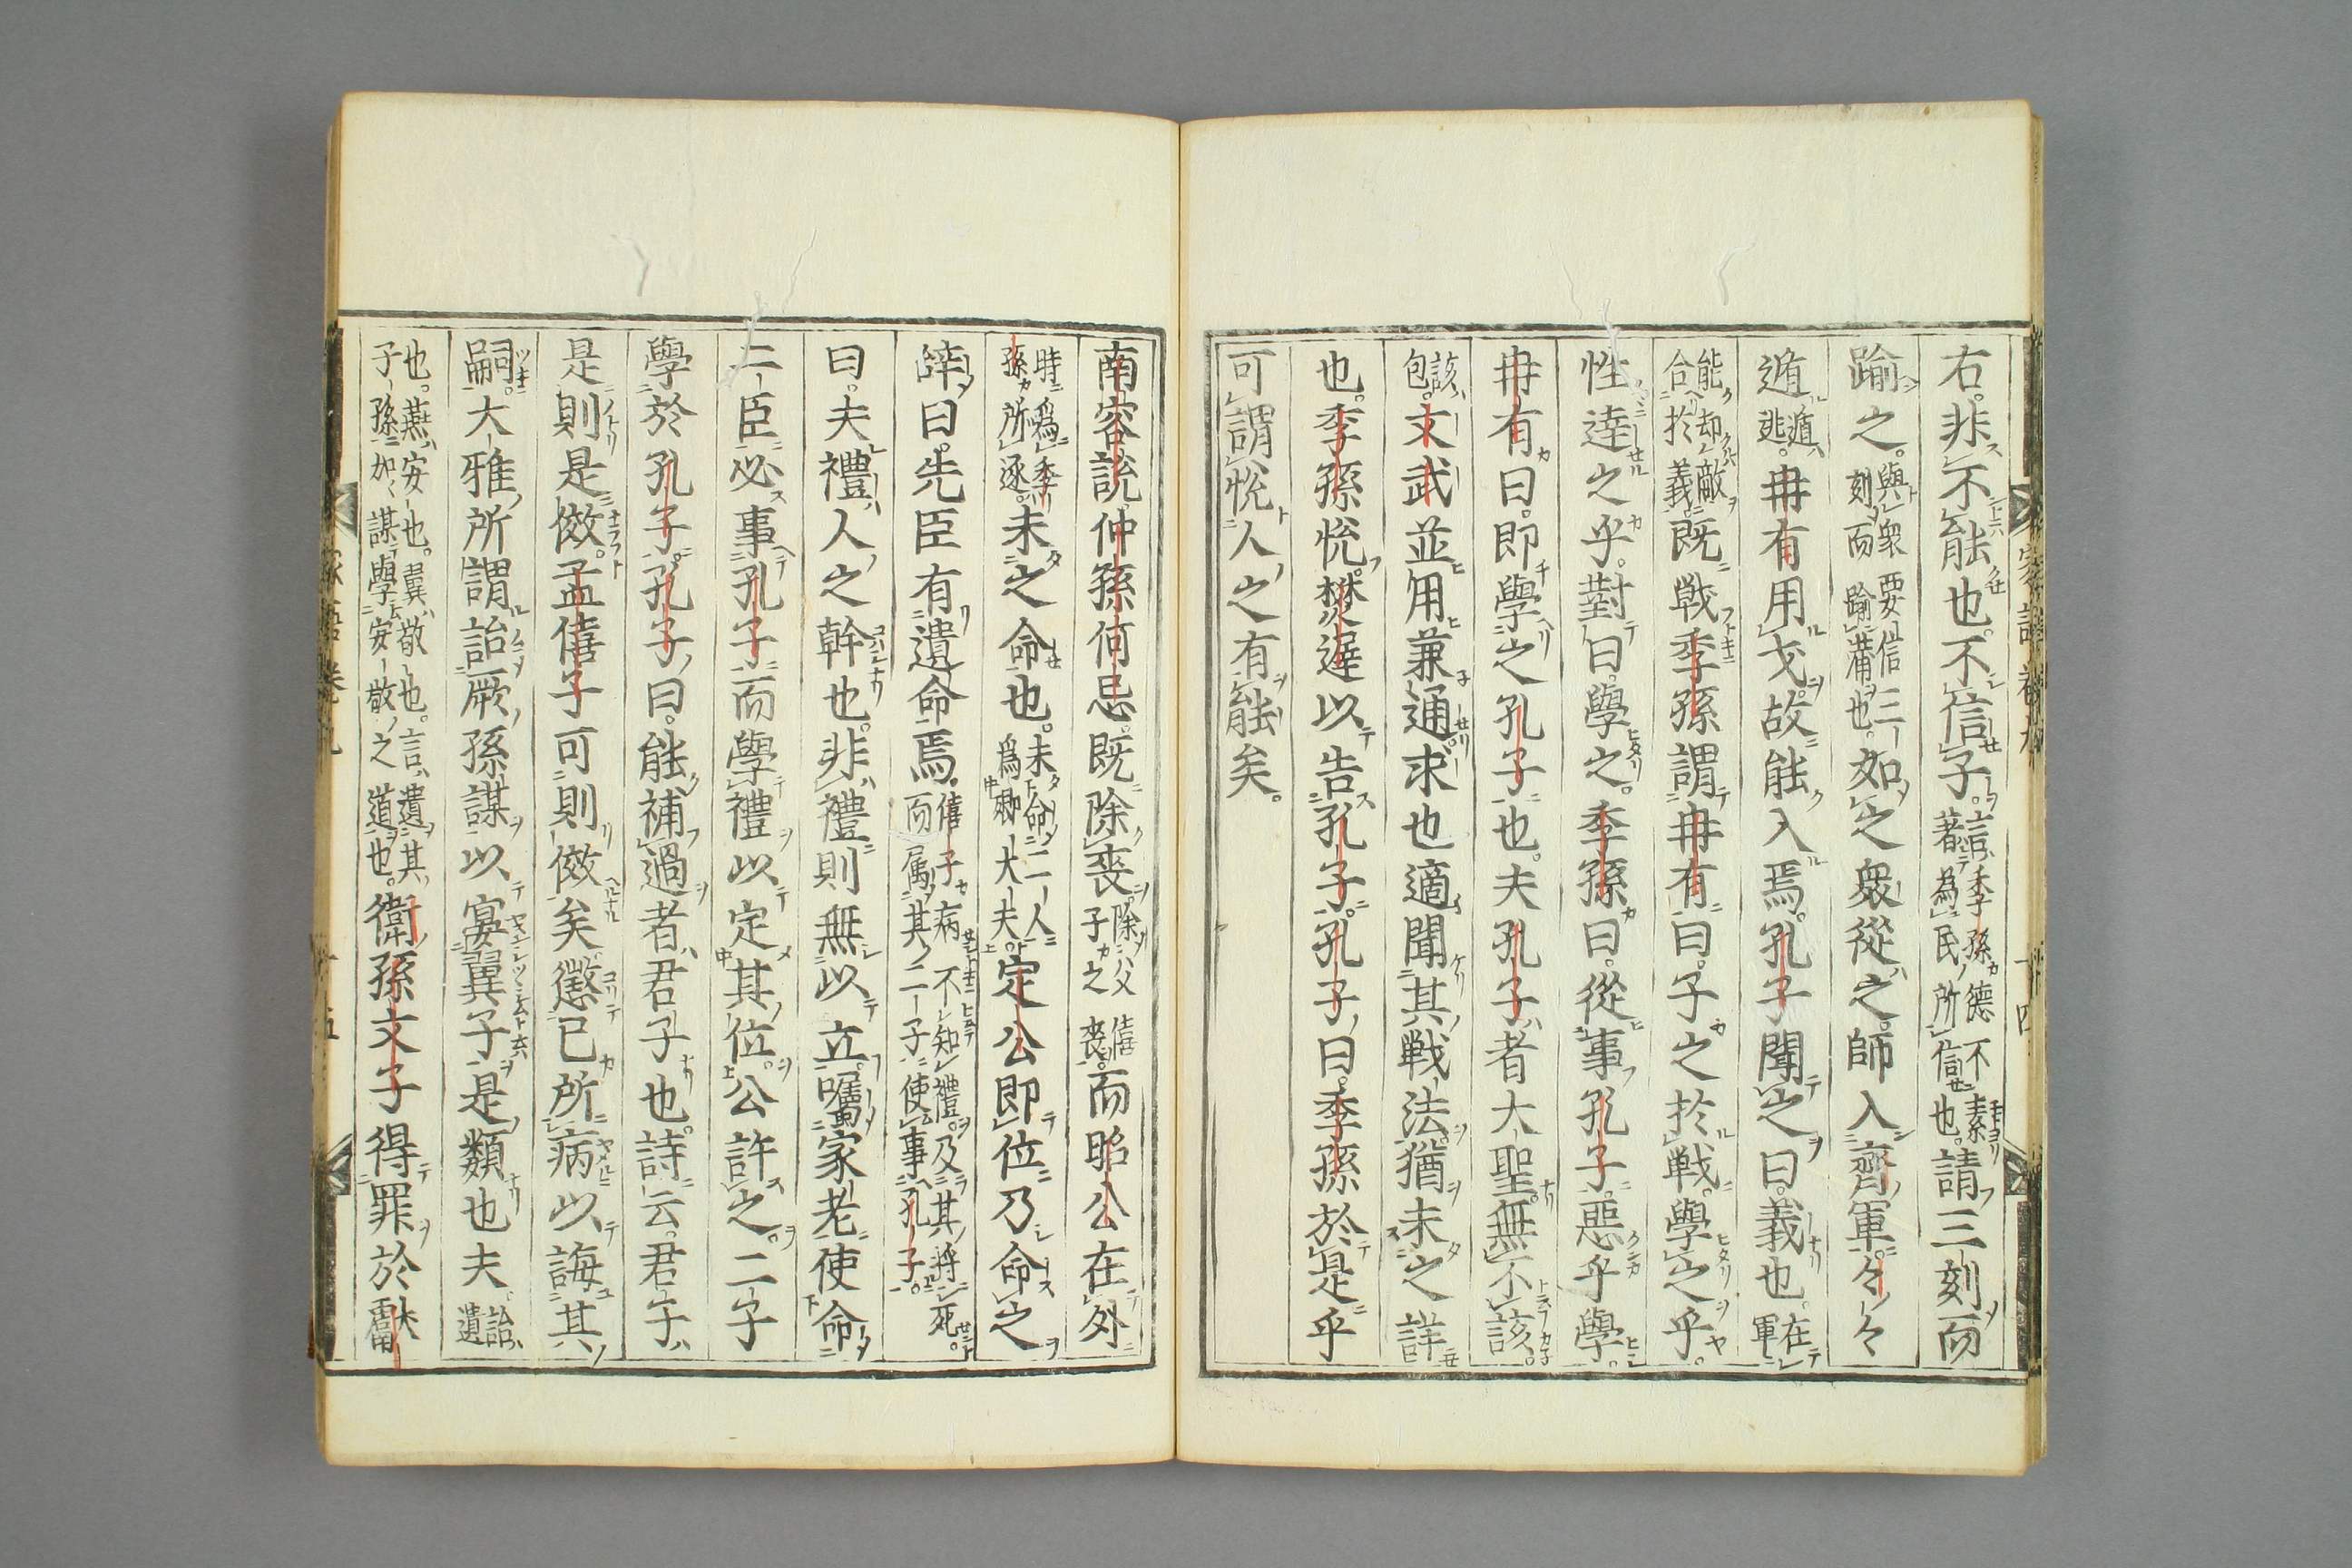 右。非不能也。不信子。言季孫德不素著為民所信也。請三刻而
踰之。與衆要信三刻而踰溝也。如之衆從之。師入齊軍。々々
遁。遁逃。冉有用戈。故能入焉。孔子聞之曰。義也。在軍
能却敵合於義。既戰季孫謂冉有曰。子之於戰。學之乎。
性達之乎。對曰。學之。季孫曰。從事孔子。惡乎學。
冉有曰。即學之孔子也。夫孔子者大聖。無不該。
該包。文武並用兼通。求也適聞其戰法。猶未之詳
也。季孫悅。樊遲以告孔子。孔子曰。季孫於是乎
可謂悅人之有能矣。
南容說仲孫何忌既除喪。除父僖子之喪。而昭公在外
時為季孫所逐。未之命也。未命二人為卿大夫。定公即位。乃命之
辭曰。先臣有遺命焉。僖子病不知禮。及其將死。而属其二子使事孔子。
曰。夫禮人之幹也。非禮則無以立。囑家老使命
二臣必事孔子而學禮以定其位。公許之。二子
學於孔子。孔子曰。能補過者君子也。詩云。君子
是則是傚。孟僖子可則傚矣。懲己所病以誨其
嗣。大雅所謂詒厥孫謀。以宴翼子是類也夫。詒遺
也。燕安也。翼敬也。言遺其子孫如謀學安敬之道也。衛孫文子得罪於獻